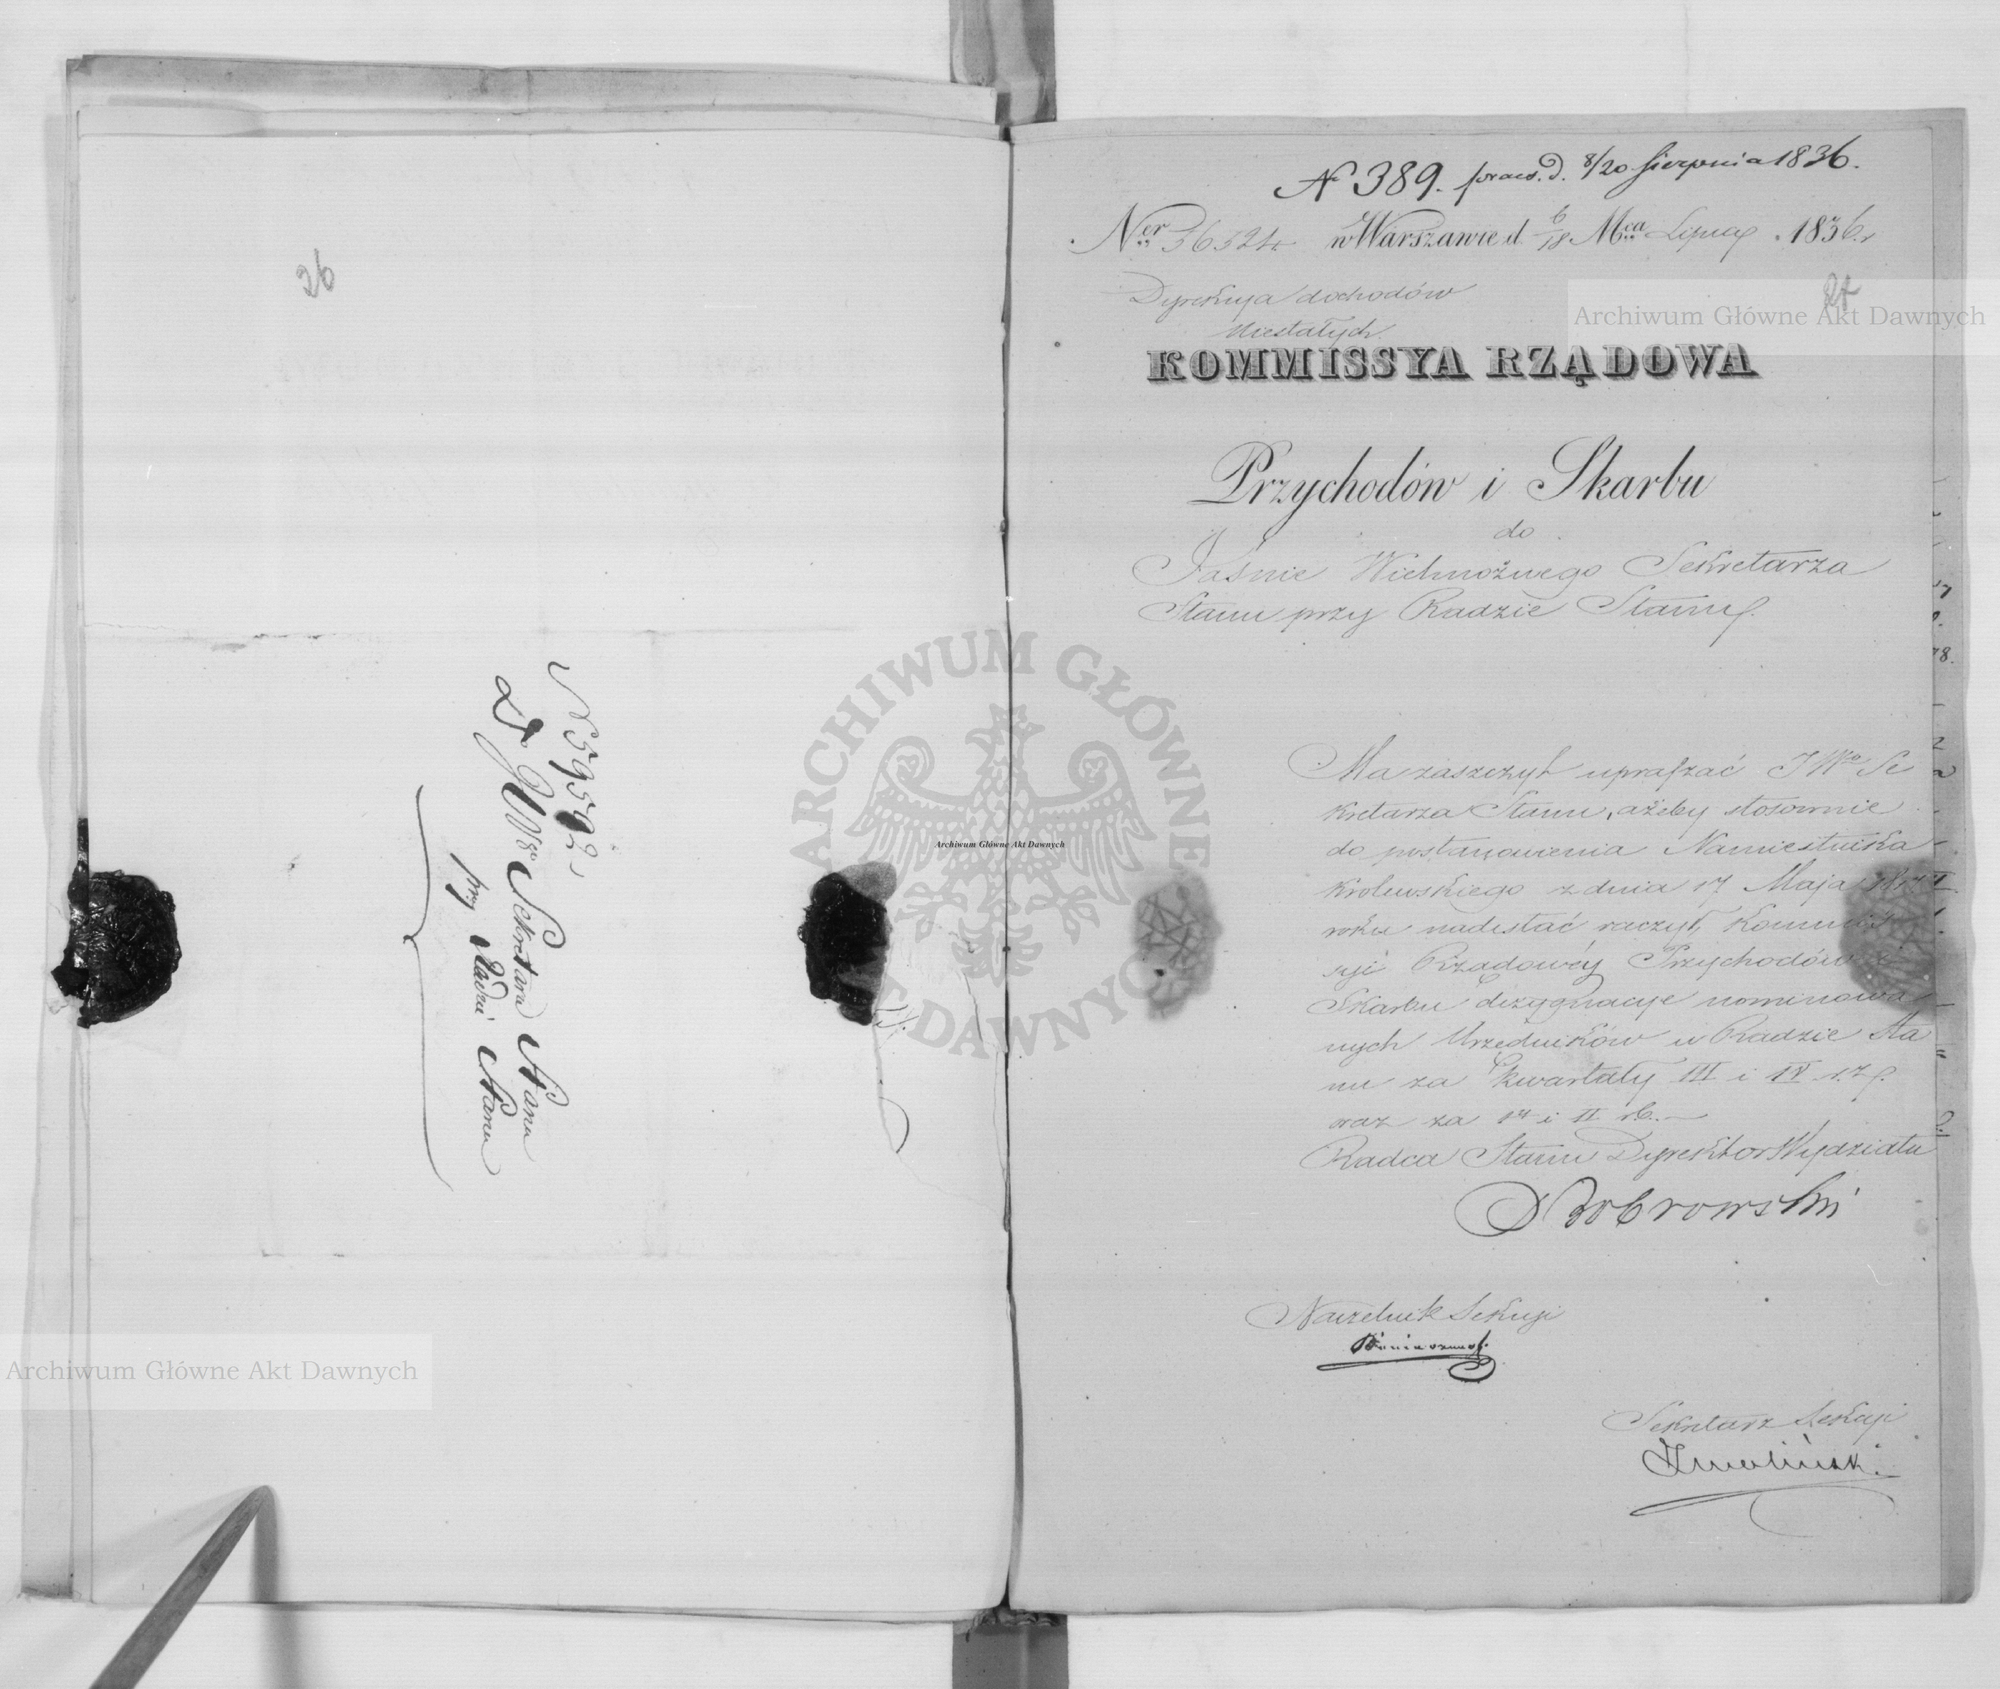 26
N 59592
Do JWgo Sekretarza Stanu
przy Radzie Stanu
N 389. praes. d. 8/20 Sierpnia 1836.
Ner 36324 w Warszawie d. 6/18 Mca Lipca 1836 r
Dyrekcya dochodów
Niestałych
27
KOMMISSYA RZĄDOWA
Przychodów i Skarbu
do
Jaśnie Wielmożnego Sekretarza
Stanu przy Radzie Stanu.
Ma zaszczyt upraszać JWgo Se
kretarza Stanu, ażeby stosownie
do postanowienia Namiestnika
Królewskiego z dnia 17 Maja
roku nadesłać raczył Kommis
syi Rządowéy Przychodów i
Skarbu dezygnacye nominowa
nych Urzędników w Radzie Sta
nu za kwartały III i IV r. z.
oraz za I i II r. b.
Radca Stanu Dyrektor Wydziału
Dobrowski
Naczelnik Sekcyi
Sekretarz Sekcyi
Archiwum Główne Akt Dawnych
Archiwum Główne Akt Dawnych
Archiwum Główne Akt Dawnych
ARCHIWUM GŁÓWNE AKT DAWNYCH